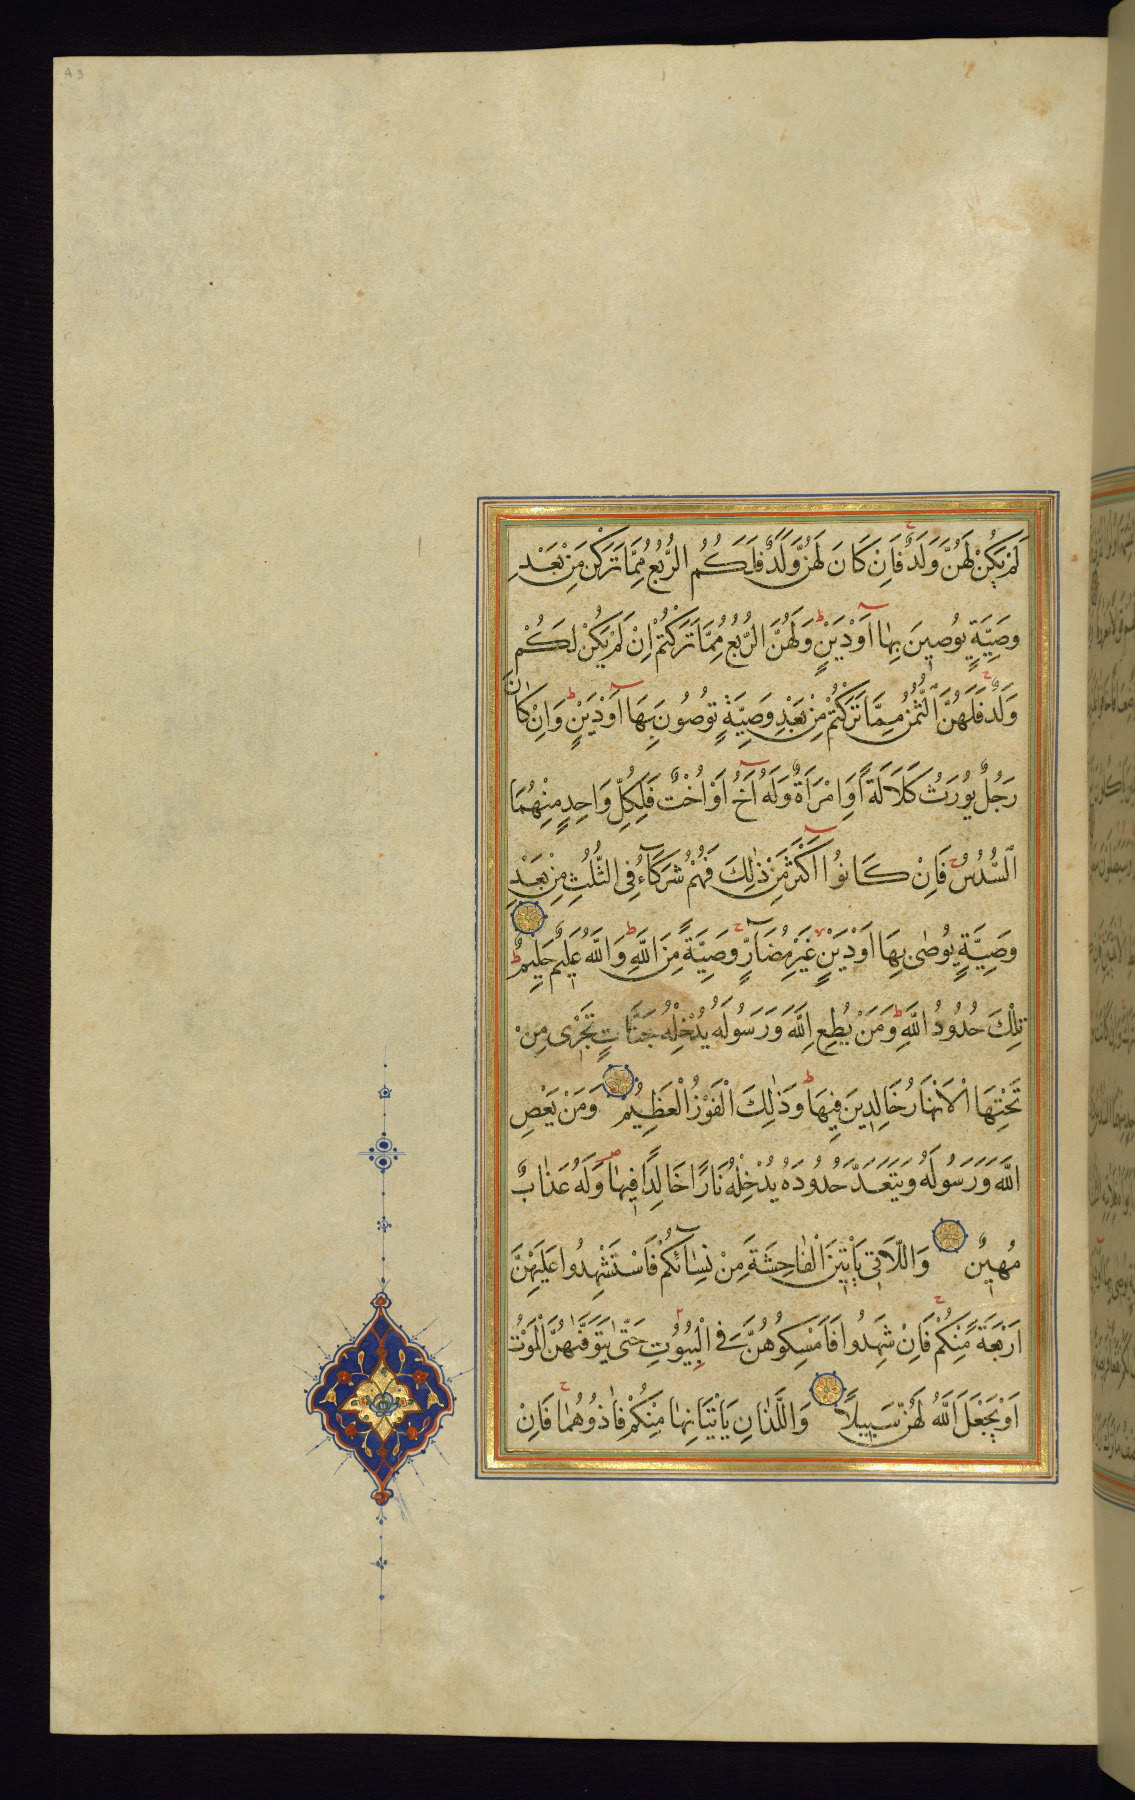 43
لَمْ يَكُنْ لَهُنَّ وَلَدٌ فَاِنْ كَانَ لَهُنَّ وَلَدٌ فَلَكُمُ الرُّبُعُ مِمَّا تَرَكْنَ مِنْ بَعْدِ
وَصِيَّةٍ يُوصِينَ بِهَا اَوْ دَيْنٍ ط وَلَهُنَّ الرُّبُعُ مِمَّا تَرَكْتُمْ اِنْ لَمْ يَكُنْ لَكُمْ
وَلَدٌ فَلَهُنَّ الثُّمُنُ مِمَّا تَرَكْتُمْ مِنْ بَعْدِ وَصِيَّةٍ تُوصُونَ بِهَا اَوْ دَيْنٍ ط وَاِنْ كَانَ
رَجُلٌ يُورَثُ كَلَالَةً اَوِ امْرَاَةٌ وَلَهُ اَخٌ اَوْ اُخْتٌ فَلِكُلِّ وَاحِدٍ مِنْهُمَا
السُّدُسُ ج فَاِنْ كَانُوا اَكْثَرَ مِنْ ذٰلِكَ فَهُمْ شُرَكَاءُ فِى الثُّلُثِ مِنْ بَعْدِ
وَصِيَّةٍ يُوصٰى بِهَا اَوْ دَيْنٍ غَيْرَ مُضَارٍّ ج وَصِيَّةً مِنَ اللّٰهِ ط وَاللّٰهُ عَلِيمٌ حَلِيمٌ ط
تِلْكَ حُدُودُ اللّٰهِ ط وَمَنْ يُطِعِ اللّٰهَ وَرَسُولَهُ يُدْخِلْهُ جَنَّاتٍ تَجْرِى مِنْ
تَحْتِهَا الْاَنْهَارُ خَالِدِينَ فِيهَا ط وَذٰلِكَ الْفَوْزُ الْعَظِيمُ وَمَنْ يَعْصِ
اللّٰهَ وَرَسُولَهُ وَيَتَعَدَّ حُدُودَهُ يُدْخِلْهُ نَارًا خَالِدًا فِيهَا ص وَلَهُ عَذَابٌ
مُهِينٌ وَاللَّاتِى يَاْتِينَ الْفَاحِشَةَ مِنْ نِسَائِكُمْ فَاسْتَشْهِدُوا عَلَيْهِنَّ
اَرْبَعَةً مِنْكُمْ ج فَاِنْ شَهِدُوا فَاَمْسِكُوهُنَّ فِى الْبُيُوتِ حَتّٰى يَتَوَفّٰهُنَّ الْمَوْتُ
اَوْ يَجْعَلَ اللّٰهُ لَهُنَّ سَبِيلًا وَاللَّذَانِ يَاْتِيَانِهَا مِنْكُمْ فَاٰذُوهُمَا ج فَاِنْ